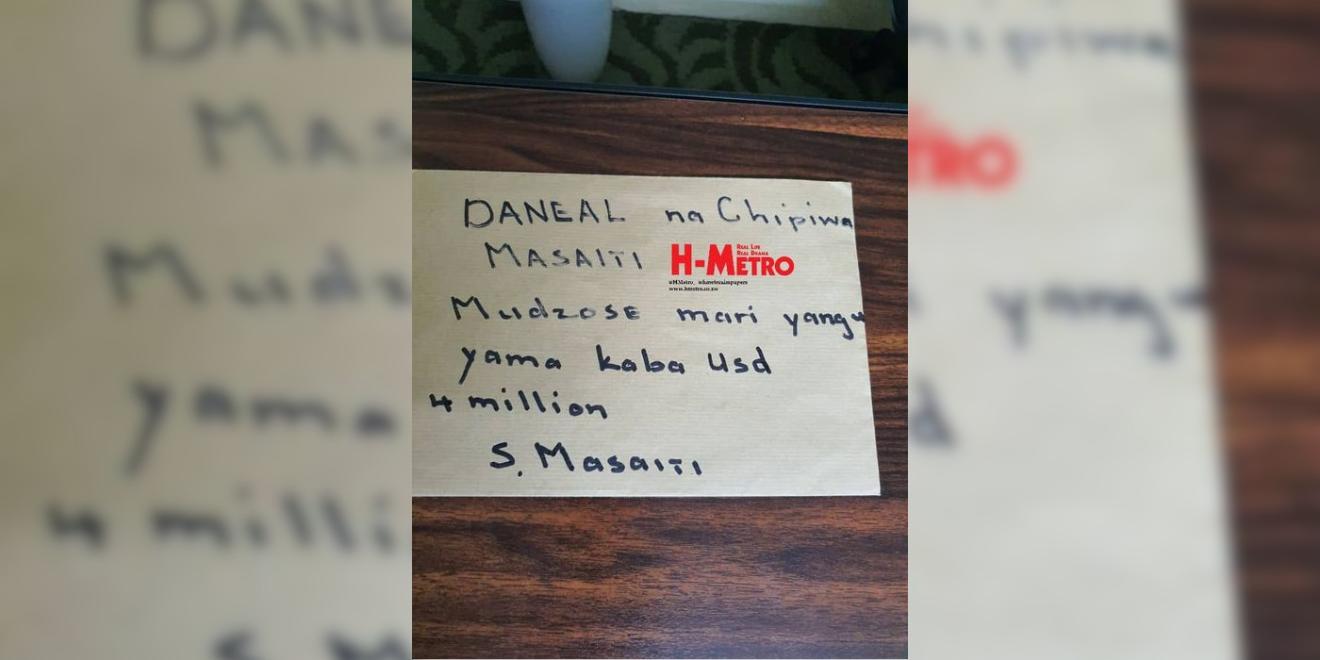 DANEAL na Chipiwa
MASAITI
H-METRO
REAL LIFE
REAL DRAMA
www.hmetro.co.zw
Mudzose mari yangu
yama kaba usd
4 million
S. Masaiti